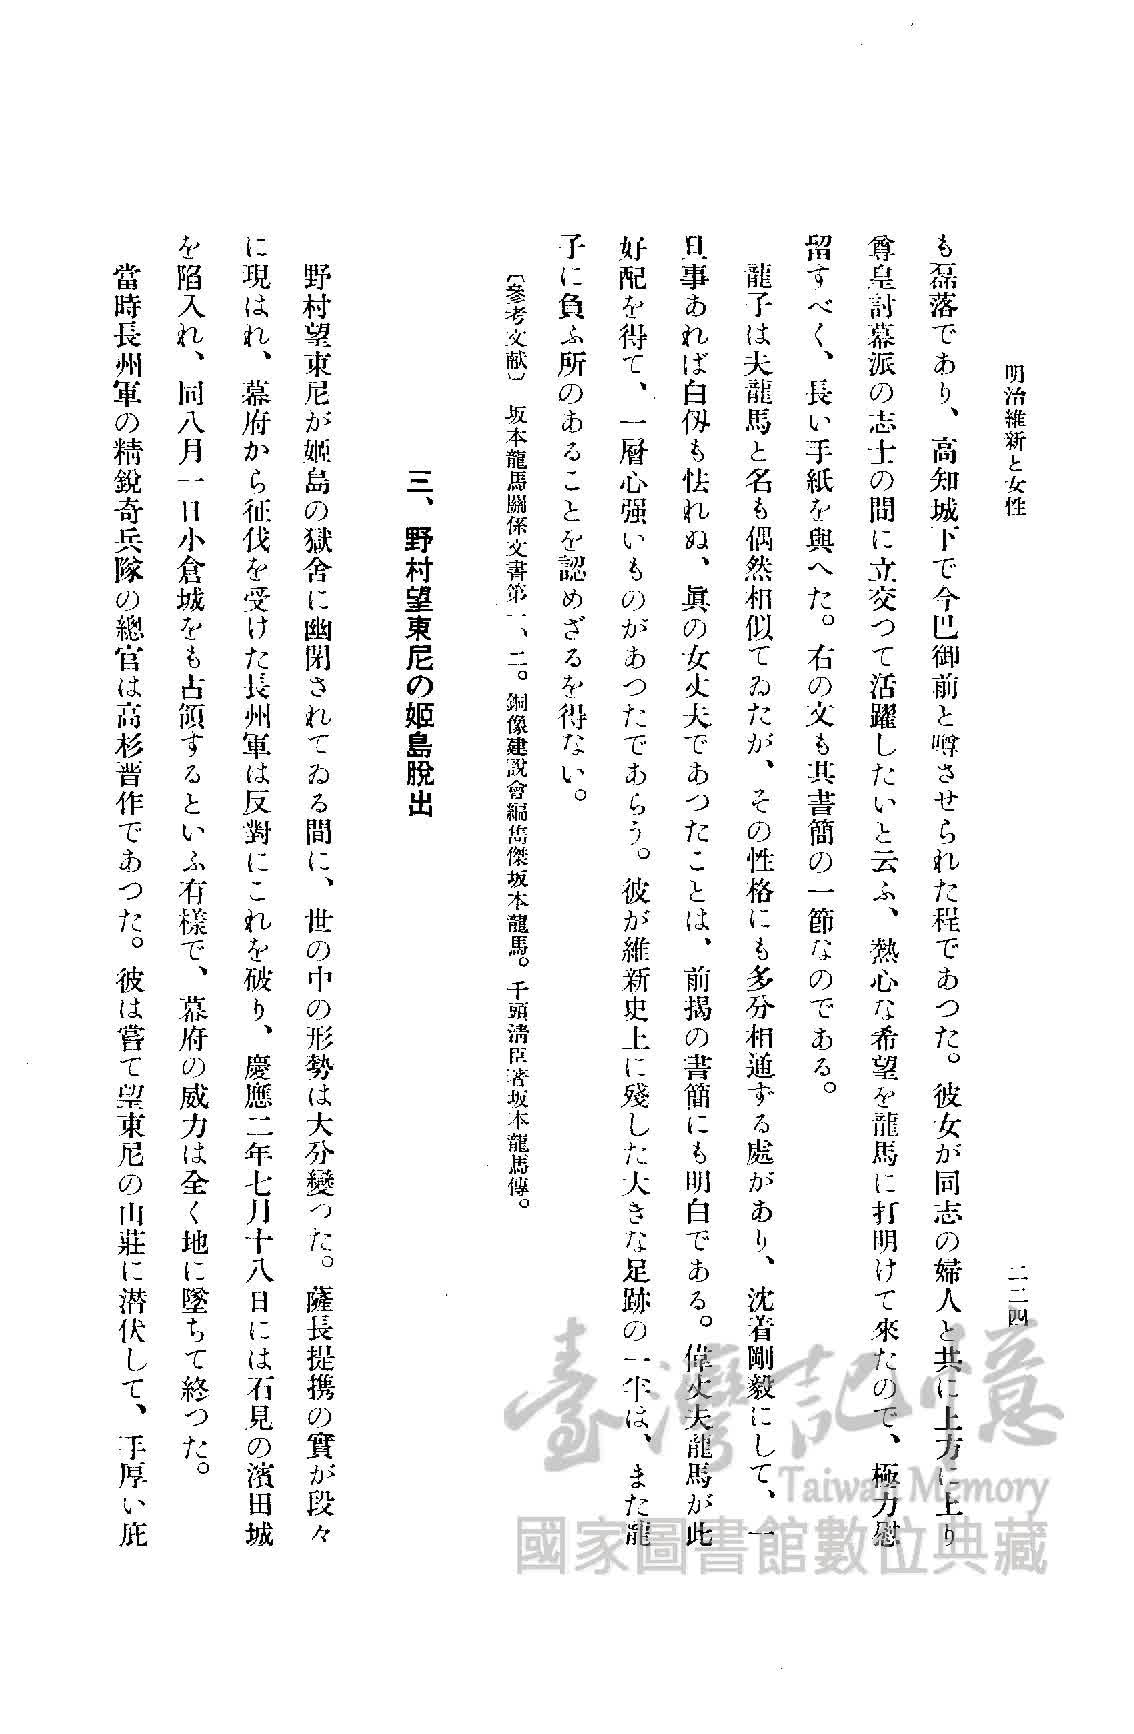 明治維新と女性
二二四
も磊落であり、高知城下で今巴御前と噂させられた程であつた。彼女が同志の婦人と共に上方に上り
尊皇討幕派の志士の間に立交つて活躍したいと云ふ、熱心な希望を龍馬に打明けて來たので、極力慰
留すべく、長い手紙を與へた。右の文も其書簡の一節なのである。
龍子は夫龍馬と名も偶然相似てゐたが、その性格にも多分相通ずる處があり、沈着剛毅にして、一
旦事あれば白刄も怯れぬ、眞の女丈夫であつたことは、前揭の書簡にも明白である。偉丈夫龍馬が此
好配を得て、一層心强いものがあつたであらう。彼が維新史上に殘した大きな足跡の一半は、また龍
子に負ふ所のあることを認めざるを得ない。
〔參考文献〕 坂本龍馬關係文書第一、二。銅像建設會編雋傑坂本龍馬。千頭淸臣著坂本龍馬傳。
三、野村望東尼の姬島脫出
野村望東尼が姬島の獄舍に幽閉されてゐる間に、世の中の形勢は大分變つた。薩長提携の實が段々
に現はれ、幕府から征伐を受けた長州軍は反對にこれを破り、慶應二年七月十八日には石見の濱田城
を陷入れ、同八月一日小倉城をも占領するといふ有樣で、幕府の威力は全く地に墜ちて終つた。
當時長州軍の精銳奇兵隊の總官は高杉晋作であつた。彼は嘗て望東尼の山莊に潜伏して、手厚い庇
臺灣記憶
Taiwan Memory
國家圖書館數位典藏